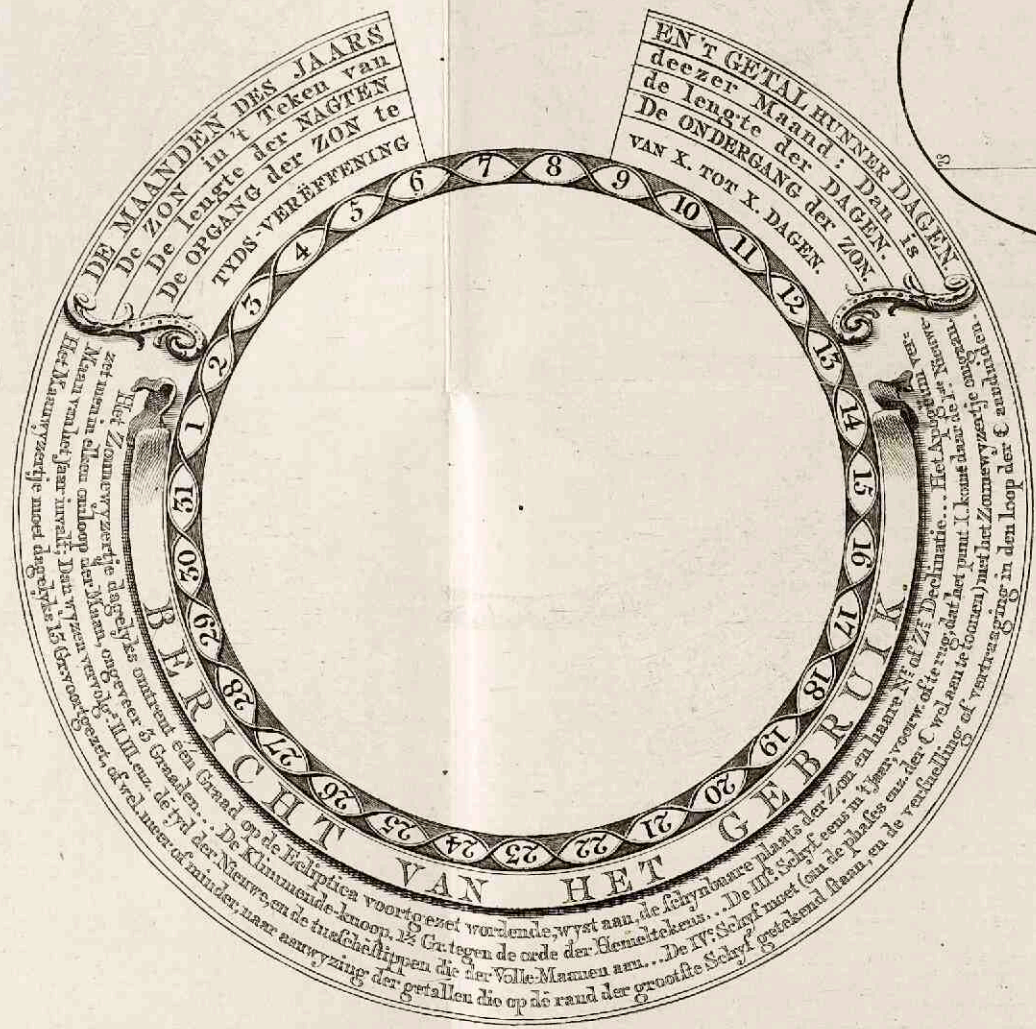 DE MAANDEN DES JAARS
De ZON in 't Teken van
De lengte der NAGTEN
De OPGANG der ZON te
TYDS-VERËFFENING
EN 'T GETAL HUNNER DAGEN.
deezer Maand: Dan is
de lengte der DAGEN.
De ONDERGANG der ZON.
VAN X. TOT X. DAGEN.
1 2 3 4 5 6 7 8 9 10 11 12 13 14 15 16 17 18 19 20 21 22 23 24 25 26 27 28 29 30 31
BERICHT VAN HET GEBRUIK.
Het Zonnewyzertje dagelyks omtrent één Graad op de Ecliptica voortgezet wordende, wyst aan, de schynbaare plaats der Zon en haare Nr. of Zr. Declinatie... Het Apogeum ver-
zet men in elken omloop der Maan, ongeveer 3 Graaden... De Klimmende-knoop, 1½ Gr. tegen de orde der Hemeltekens... De IIIe. Schyf, eens in 't Jaar, voorw. of te rug, dat het punt I. kome daar de 1ste Nieuwe-
Maan van het jaar invalt; Dan wyzen vervolg. II. III. enz. de tyd der Nieuwe, en de tusschestippen die der Volle-Maanen aan... De IVe. Schyf moet (om de phases enz. der ☾ wel aan te toonen) met het Zonnewyzertje omgaan.
Het Maanwyzertje moet dagelyks 13 Gr. voortgezet, of wel, meer of minder, naar aanwyzing der getallen die op de rand der grootste Schyf getekend staan, en de versnelling of vertraaging in den loop der ☾ aanduiden.